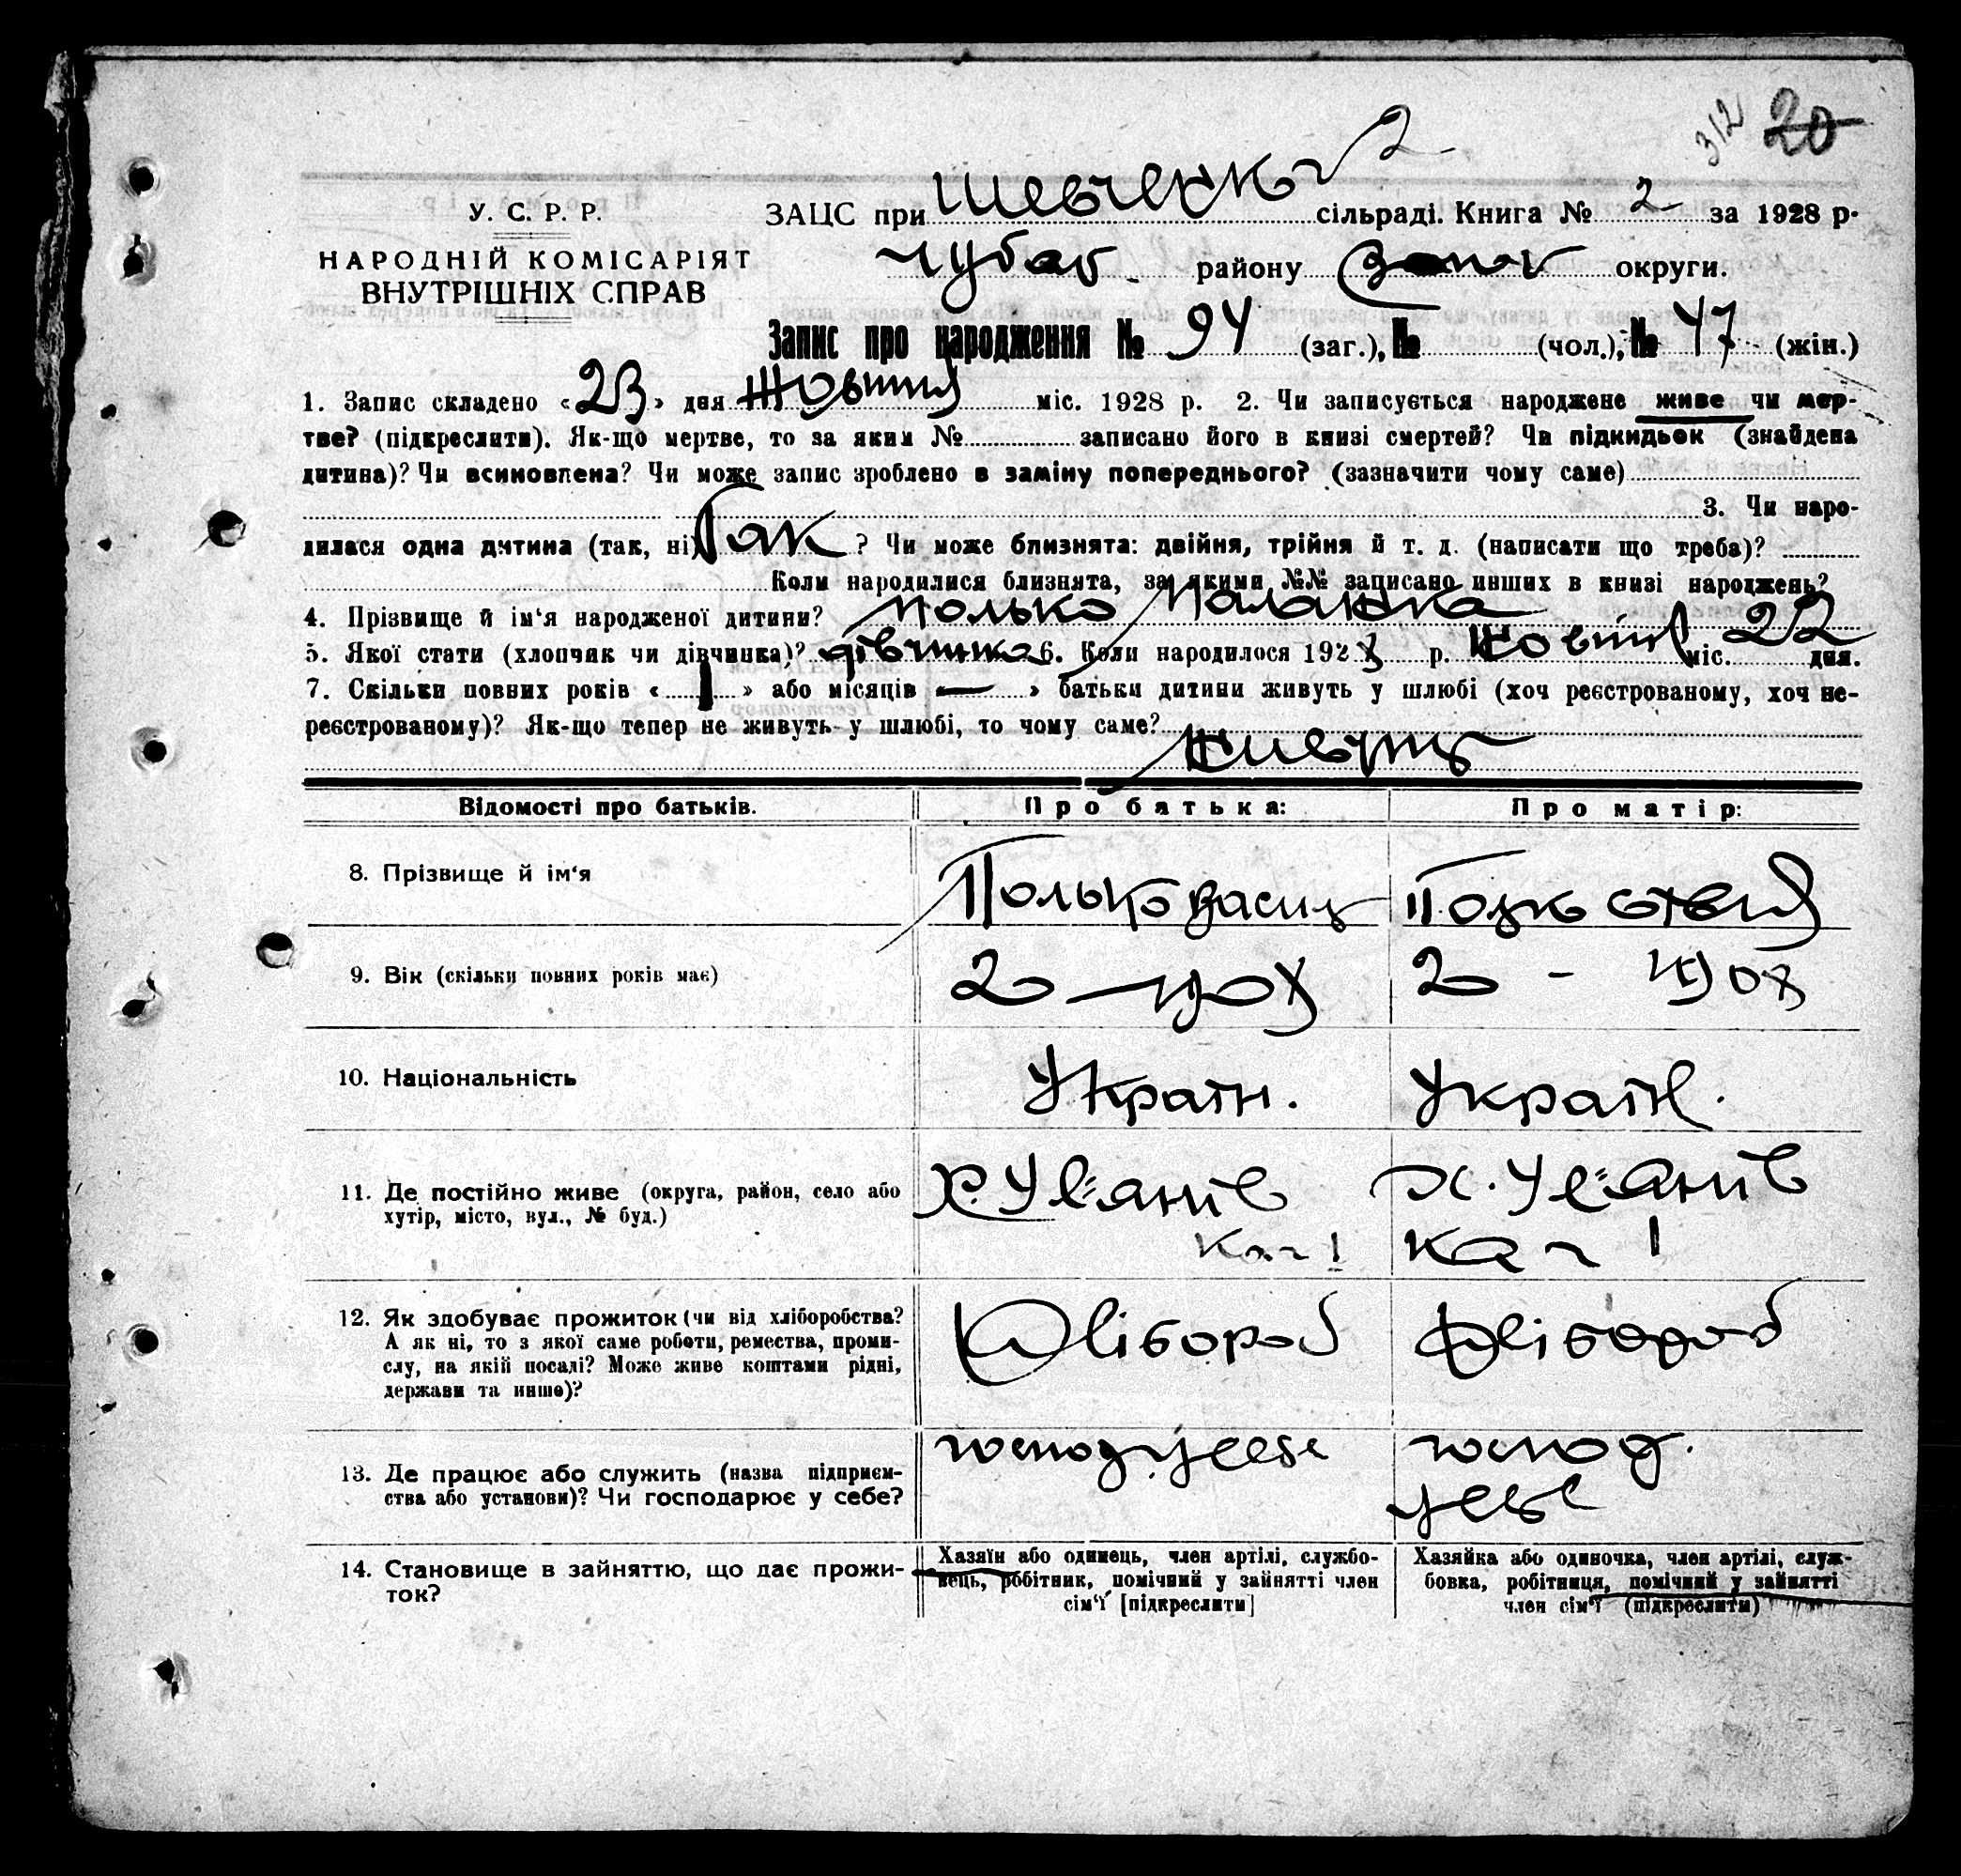 312 20
У. С. Р. Р.
НАРОДНІЙ КОМІСАРІЯТ
ВНУТРІШНІХ СПРАВ
ЗАЦС при Шевченко 2 сільраді. Книга № 2 за 1928 р.
Чубар. району округи.
Запис про народження № 94 (заг.), № (чол.), № 47 (жін.)
1. Запис складено «23» дня Жовтня міс. 1928 р. 2. Чи записується народжене живе чи мер-
тве? (підкреслити). Як-що мертве, то за яким № записано його в книзі смертей? Чи підкидьок (знайдена
дитина)? Чи всиновлена? Чи може запис зроблено в заміну попереднього? (зазначити чому саме)
3. Чи наро-
дилася одна дитина (так, ні) Так ? Чи може близнята: двійня, трійня й т. д. (написати що треба)?
Коли народилися близнята, за якими №№ записано инших в книзі народжень?
4. Прізвище й ім‘я народженої дитини? Полько Палажка
5. Якої стати (хлопчик чи дівчинка)? дівчинка 6. Коли народилося 1928 р. Жовтня міс. 22 дня.
7. Скільки повних років «1» або місяців «—» батьки дитини живуть у шлюбі (хоч реєстрованому, хоч не-
реєстрованому)? Як-що тепер не живуть у шлюбі, то чому саме?
живуть
Відомості про батьків. Про батька: Про матір:
8. Прізвище й ім‘я Полько Василь Полько
9. Вік (скільки повних років має) 20 — 1908 20 - 1908
10. Національність Україн. Україн.
11. Де постійно живе (округа, район, село або
хутір, місто, вул., № буд.)
х. х.
1 1
12. Як здобуває прожиток (чи від хліборобства?
А як ні, то з якої саме роботи, ремества, проми-
слу, на якій посаді? Може живе коштами рідні,
держави та инше)?
Хлібороб Хлібороб
13. Де працює або служить (назва підприєм-
ства або установи)? Чи господарює у себе?
господ. у себе господ.
у себе
14. Становище в зайняттю, що дає прожи-
ток?
Хазяїн або одинець, член артілі, службо-
вець, робітник, помічний у зайнятті член
сім‘ї [підкреслити]
Хазяйка або одиночка, член артілі, служ-
бовка, робітниця, помічний у зайнятті
член сім‘ї (підкреслити)